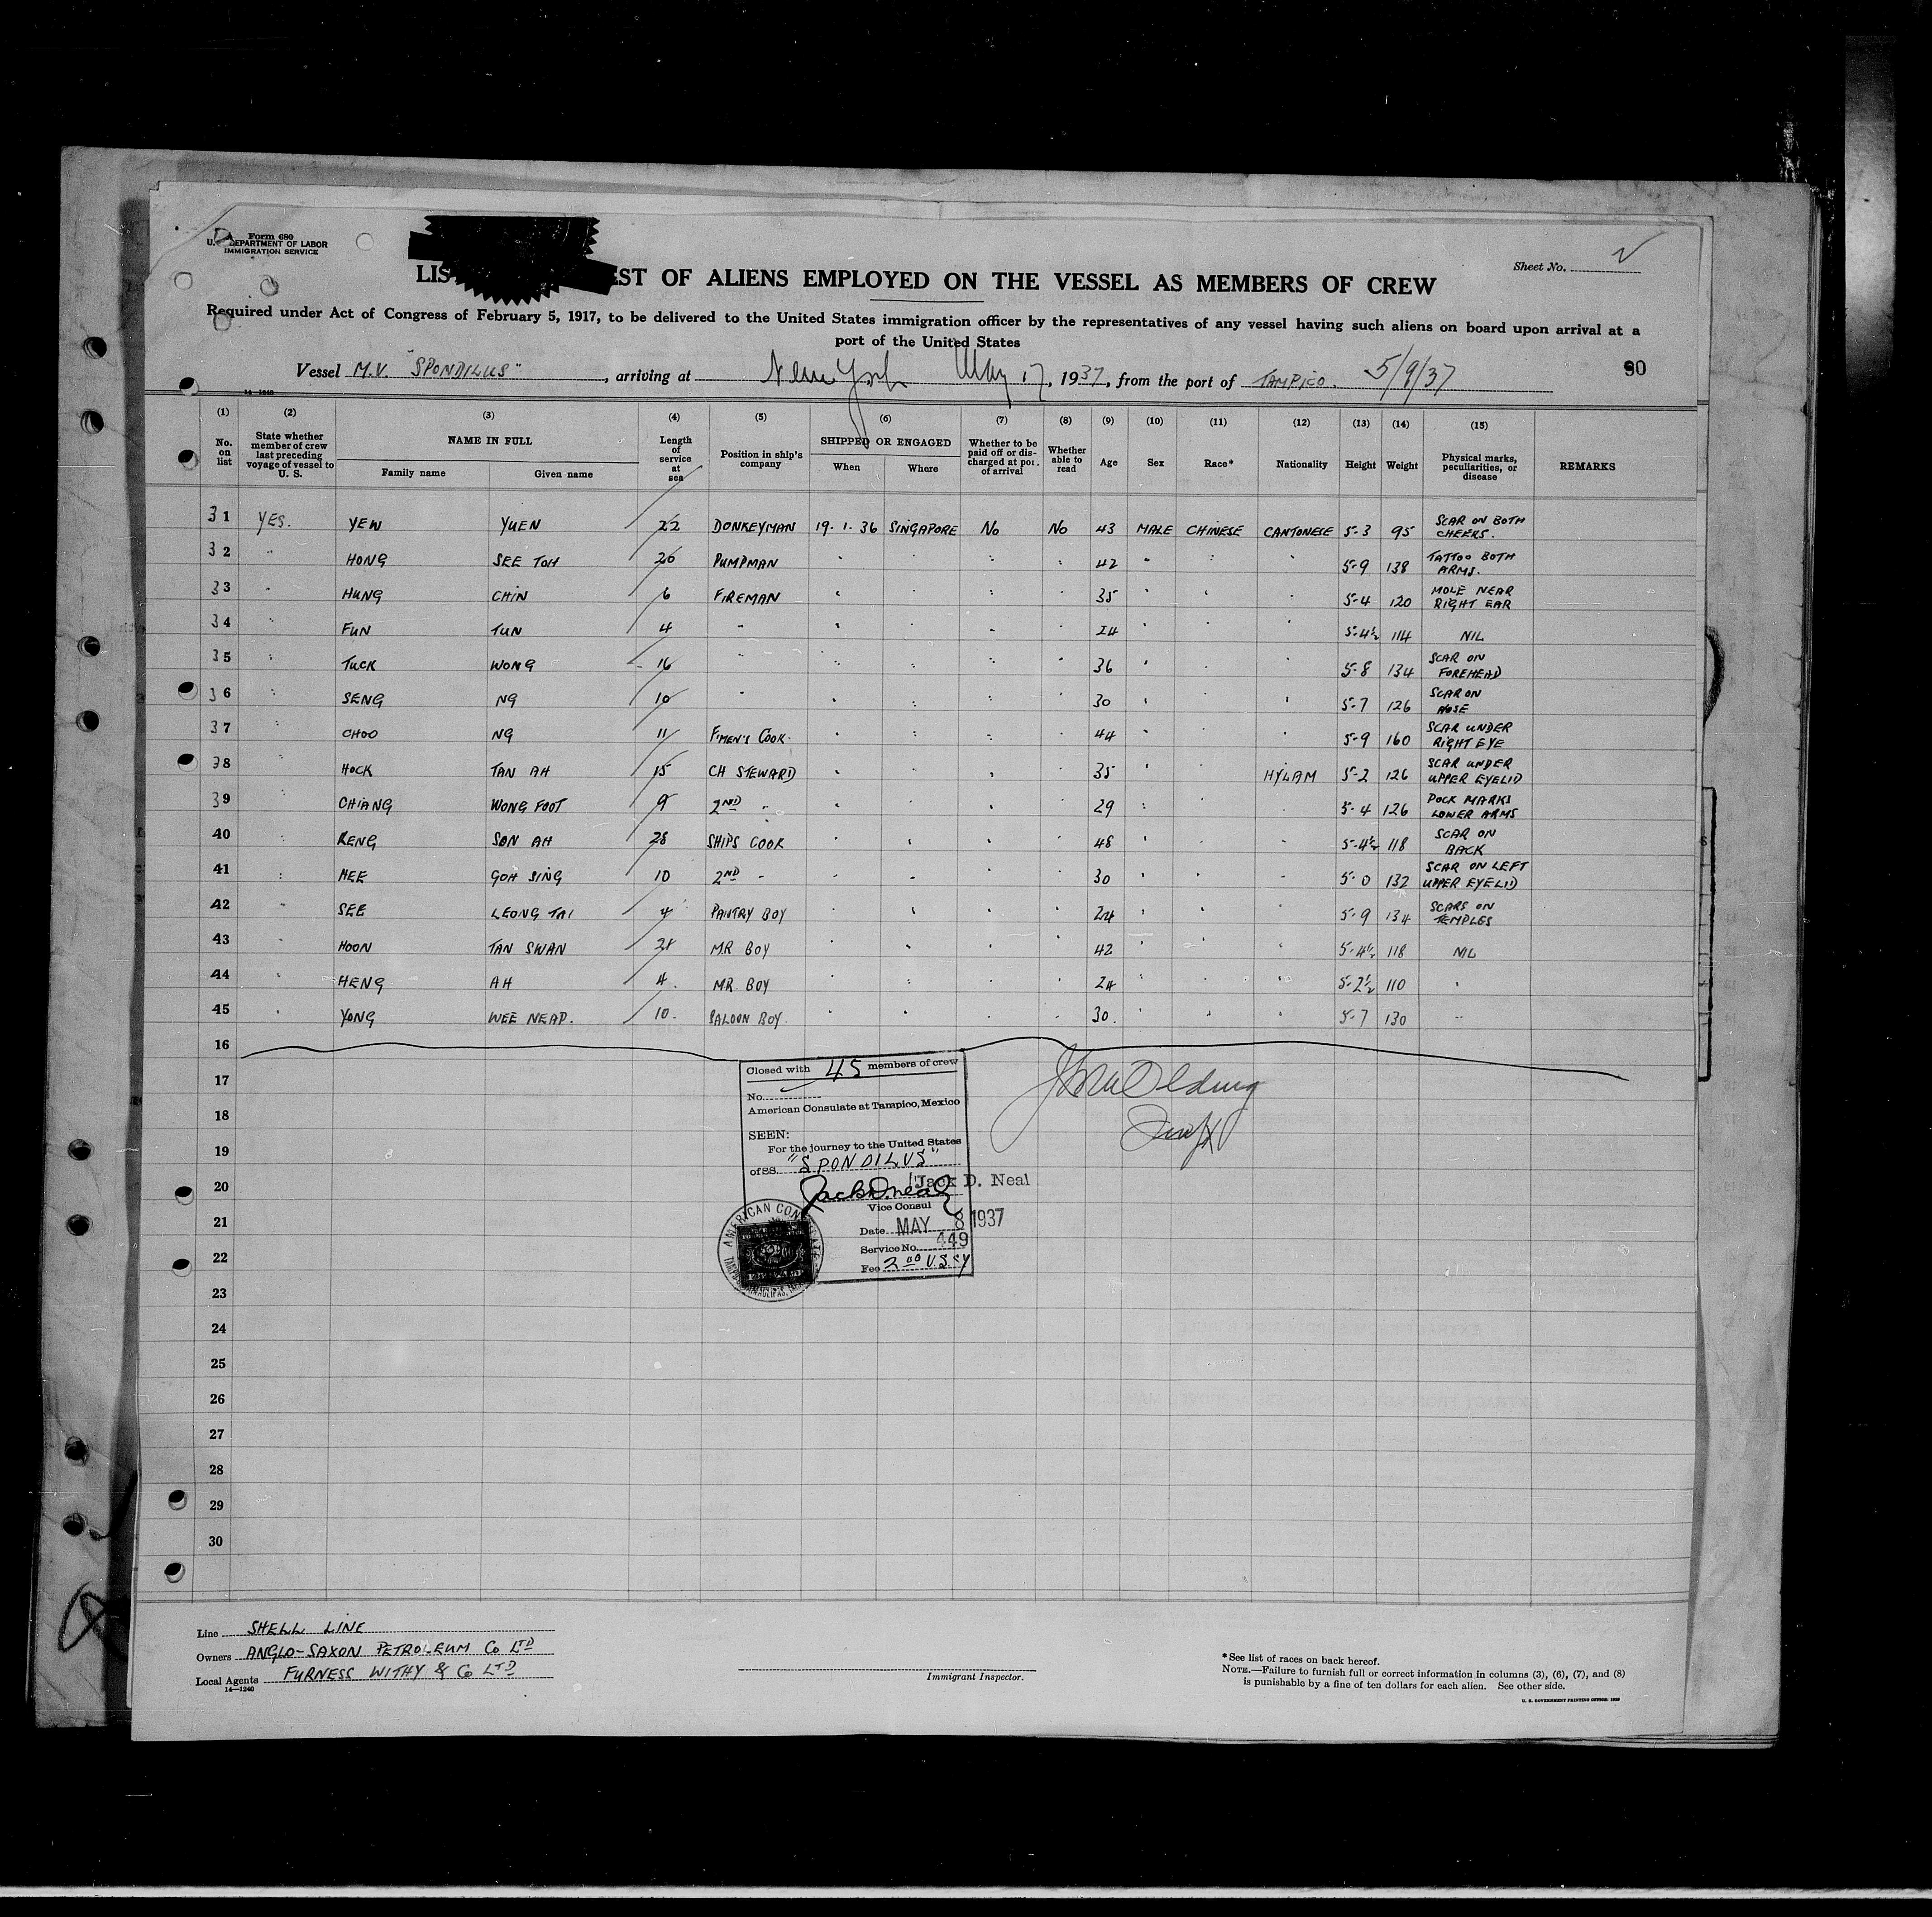 Form 680
U. S. DEPARTMENT OF LABOR
IMMIGRATION SERVICE
Sheet No. 2
LIS EST OF ALIENS EMPLOYED ON THE VESSEL AS MEMBERS OF CREW
Required under Act of Congress of February 5, 1917, to be delivered to the United States immigration officer by the representatives of any vessel having such aliens on board upon arrival at a
port of the United States
Vessel M.V. "SPONDILUS", arriving at New York May 17, 1937, from the port of TAMPICO. 5/9/37
90
14-1240
(1) No. on list (2) State whether member of crew last preceding voyage of vessel to U. S. (3) NAME IN FULL Family name Given name (4) Length of service at sea (5) Position in ship's company (6) SHIPPED OR ENGAGED When Where (7) Whether to be paid off or discharged at port of arrival (8) Whether able to read (9) Age (10) Sex (11) Race* (12) Nationality (13) Height (14) Weight (15) Physical marks, peculiarities, or disease REMARKS
31 YES. YEW YUEN 22 DONKEYMAN 19.1.36 SINGAPORE No No 43 MALE CHINESE CANTONESE 5-3 95 SCAR ON BOTH CHEEKS.
32 " HONG SEE TOH 20 PUMPMAN " " " " 42 " " " 5-9 138 TATTOO BOTH ARMS.
33 " HUNG CHIN 6 FIREMAN " " " " 35 " " " 5-4 120 MOLE NEAR RIGHT EAR
34 " FUN TUN 4 " " " " " 24 " " " 5-4½ 114 NIL
35 " TUCK WONG 16 " " " " " 36 " " " 5-8 134 SCAR ON FOREHEAD
36 " SENG NG 10 " " " " " 30 " " " 5-7 126 SCAR ON NOSE
37 " CHOO NG 11 F'MEN'S COOK " " " " 44 " " " 5-9 160 SCAR UNDER RIGHT EYE
38 " HOCK TAN AH 15 CH STEWARD " " " " 35 " " HYLAM 5-2 126 SCAR UNDER UPPER EYELID
39 " CHIANG WONG FOOT 9 2ND " " " " " 29 " " " 5-4 126 POCK MARKS LOWER ARMS
40 " KENG SON AH 28 SHIPS COOK " " " " 48 " " " 5-4½ 118 SCAR ON BACK
41 " HEE GOH SING 10 2ND " " " " " 30 " " " 5-0 132 SCAR ON LEFT UPPER EYELID
42 " SEE LEONG TAI 4 PANTRY BOY " " " " 24 " " " 5-9 134 SCARS ON TEMPLES
43 " HOON TAN SWAN 21 M.R BOY " " " " 42 " " " 5-4½ 118 NIL
44 " HENG AH 4 MR. BOY " " " " 24 " " " 5-2½ 110 "
45 " YONG WEE NEAP. 10 SALOON BOY " " " " 30. " " " 5-7 130 "
16
17
18
19
20
21
22
23
24
25
26
27
28
29
30
Closed with 45 members of crew
No.
American Consulate at Tampico, Mexico
SEEN:
For the journey to the United States
of SS. "SPONDILUS"
Jack D. Neal
Jack D. Neal
Vice Consul
Date MAY 8 1937
Service No. 449
Fee 2.00 U.S.Cy
AMERICAN CONSULATE
Line SHELL LINE
Owners ANGLO-SAXON PETROLEUM Co LTD
Local Agents FURNESS WITHY & Co LTD
14-1240
Immigrant Inspector.
*See list of races on back hereof.
NOTE.—Failure to furnish full or correct information in columns (3), (6), (7), and (8)
is punishable by a fine of ten dollars for each alien. See other side.
U. S. GOVERNMENT PRINTING OFFICE